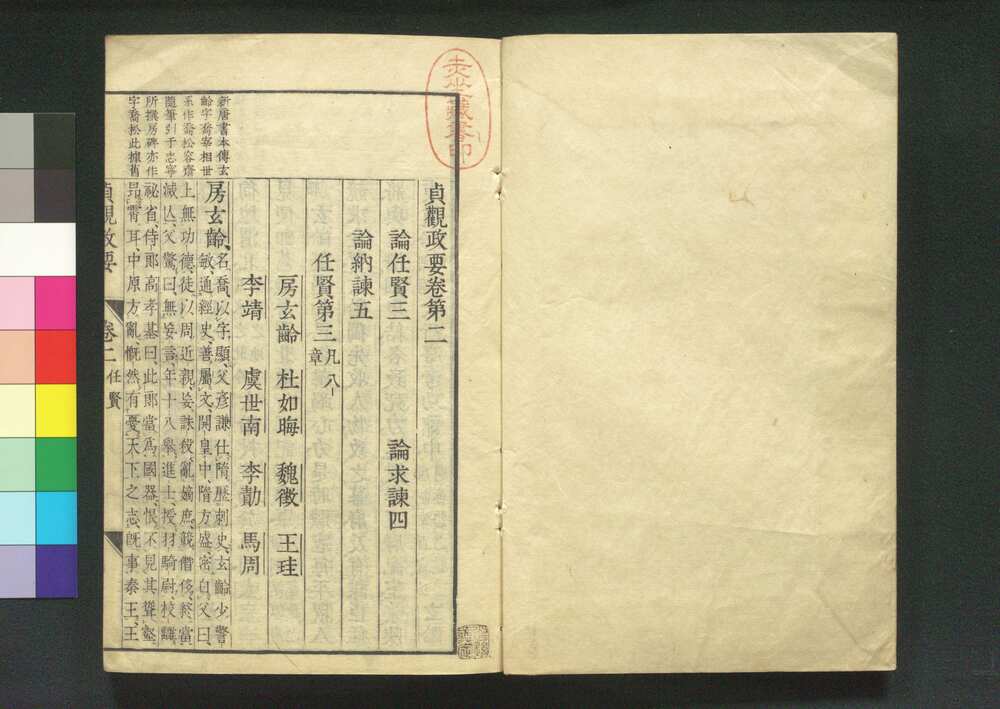 貞觀政要卷第二
論任賢三　論求諫四
論納諫五
任賢第三凡八章
房玄齡　杜如晦　魏徵　王珪
李靖　虞世南　李勣　馬周
房玄齡、名喬、以字顯、父彦謙仕隋、歷刺史、玄齡少警
敏、通經史、善屬文、開皇中、隋方盛、密白父曰、
上無功德、徒以周近親、妄誅殺、亂嫡庶、競僭侈、終當
滅亾、父驚曰、無妄言、年十八、舉進士、授羽騎尉、校讎
祕省、侍郎高孝基曰、此郎當爲國器、恨不見其聳壑
昂霄耳、中原方亂、慨然有憂天下之志、旣事秦王、王
新唐書本傳玄
齡字喬宰相世
系作喬松容齋
隨筆引于志寧
所撰房碑亦作
字喬松此據舊
貞觀政要　卷二　任賢